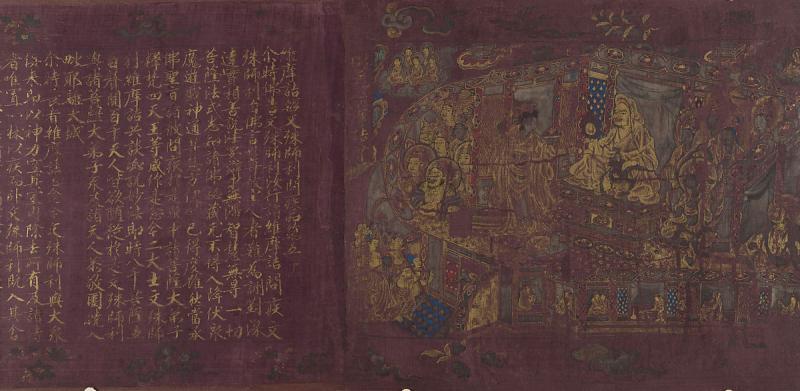 維摩詰經文殊師利問疾品苐五
尒時佛告文殊師利汝行詣維摩詰問疾文
殊師利白佛言世尊彼上人者難為詶對深
達實相善說法要辯才無滯智慧無导一切
菩薩法式悉知諸佛秘藏无不得入降伏衆
魔遊戲神通其慧方便皆已得度雖然當承
佛聖旨詣彼問疾於是衆中諸菩薩大弟子
釋梵四天王等咸作是念今二大士文殊師
利維摩詰共談必說妙法即時八千菩薩五
百聲聞百千天人皆欲隨從於是文殊師利
與諸菩薩大弟子衆及諸天人恭敬圍遶入
毗耶離大城
尒時長者維摩詰心念今文殊師利與大衆
俱來即以神力空其室內除去所有及諸侍
者唯置一牀以疾而卧文殊師利既入其舍